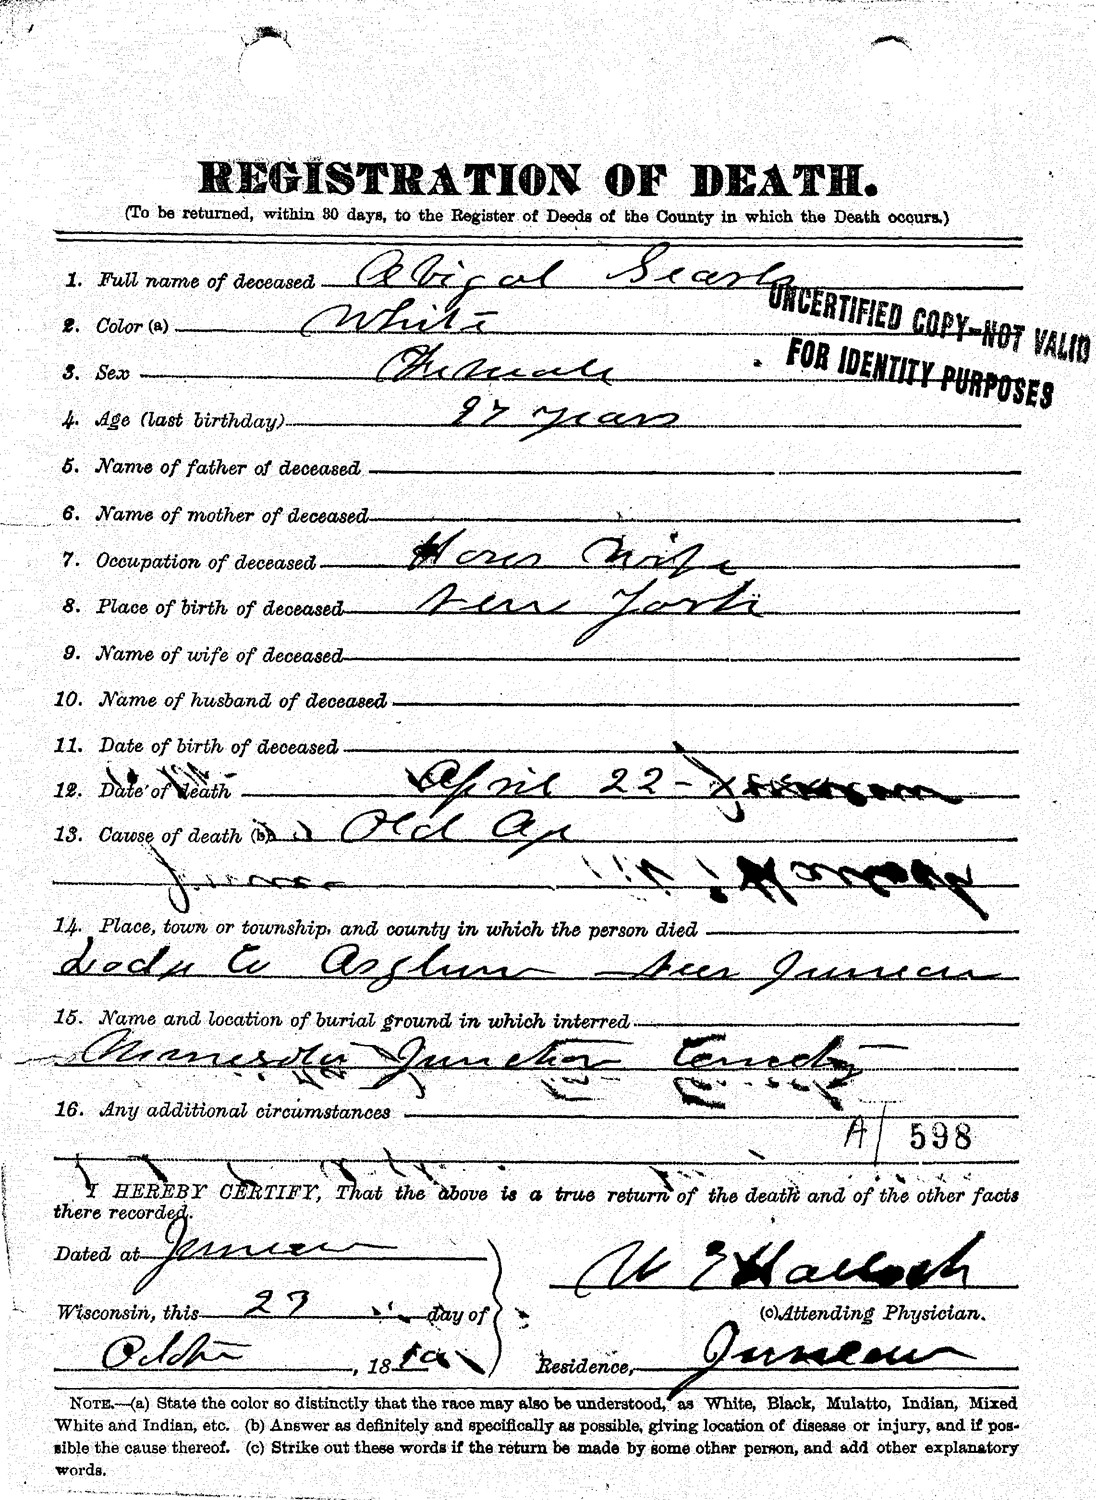 REGISTRATION OF DEATH.
(To be returned, within 30 days, to the Register of Deeds of the County in which the Death occurs.)
1. Full name of deceased Abigal Searls
UNCERTIFIED COPY-NOT VALID
FOR IDENTITY PURPOSES
2. Color (a) White
3. Sex Female
4. Age (last birthday) 97 years
5. Name of father of deceased
6. Name of mother of deceased
7. Occupation of deceased Hous Wife
8. Place of birth of deceased New York
9. Name of wife of deceased
10. Name of husband of deceased
11. Date of birth of deceased
12. Date of death April 22-
13. Cause of death (b) Old Age
14. Place, town or township, and county in which the person died
Dodge Co Asylum Near Juneau
15. Name and location of burial ground in which interred
Minnesota Junction Cemetry
16. Any additional circumstances
A/ 598
I HEREBY CERTIFY, That the above is a true return of the death and of the other facts
there recorded.
Dated at Juneau
W E Hallock
Wisconsin, this 27 day of
(c) Attending Physician.
, 18
Residence, Juneau
NOTE.—(a) State the color so distinctly that the race may also be understood, as White, Black, Mulatto, Indian, Mixed
White and Indian, etc. (b) Answer as definitely and specifically as possible, giving location of disease or injury, and if pos-
sible the cause thereof. (c) Strike out these words if the return be made by some other person, and add other explanatory
words.